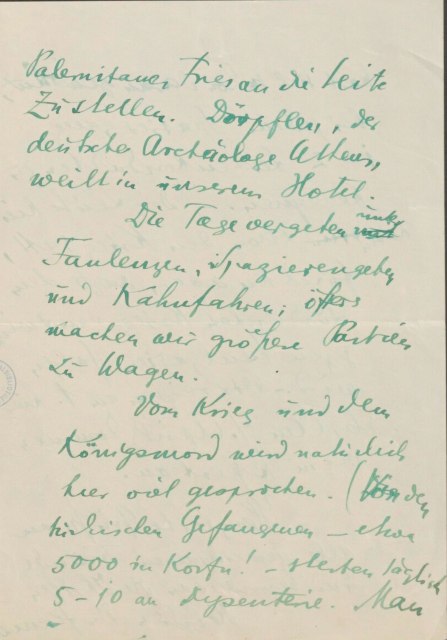 Palermitaner Fries an die Seite
zu stellen. Dörpflen, der
deutsche Archäologe Athens,
weilt in unserem Hotel.
Die Tage vergehen unter
Faulenzen, Spazierengehen
und Kahnfahren; öfters
machen wir größere Partien
zu Wagen.
Vom Krieg und dem
Königsmord wird natürlich
hier viel gesprochen. (Von den
türkischen Gefangenen – etwa
5000 in Korfu! – sterben täglich
5–10 an Dysenterie. Man